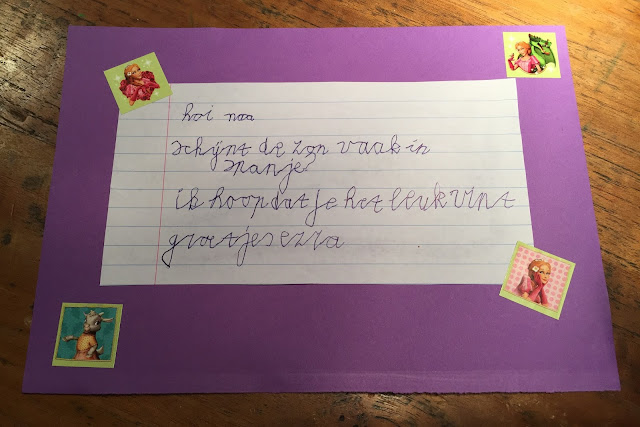 hoi noa
schijnt de zon vaak in
spanje?
ik hoop dat je het leuk vint
groetjes ezra